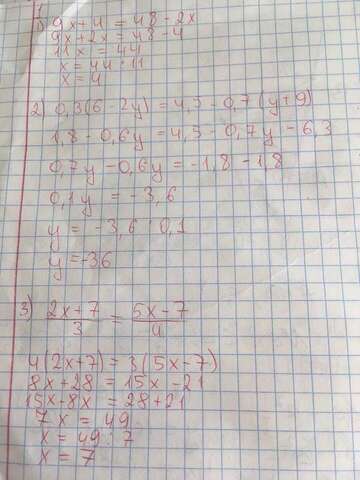 1) 9x+4 = 48-2x
9x+2x = 48-4
11x = 44
x = 44:11
x = 4
2) 0,3(6-2y) = 4,5-0,7(y+9)
1,8-0,6y = 4,5-0,7y-6,3
0,7y-0,6y = -1,8-1,8
0,1y = -3,6
y = -3,6:0,1
y = -36
3) \frac{2x+7}{3} = \frac{5x-7}{4}
4(2x+7) = 3(5x-7)
8x+28 = 15x-21
15x-8x = 28+21
7x = 49
x = 49:7
x = 7